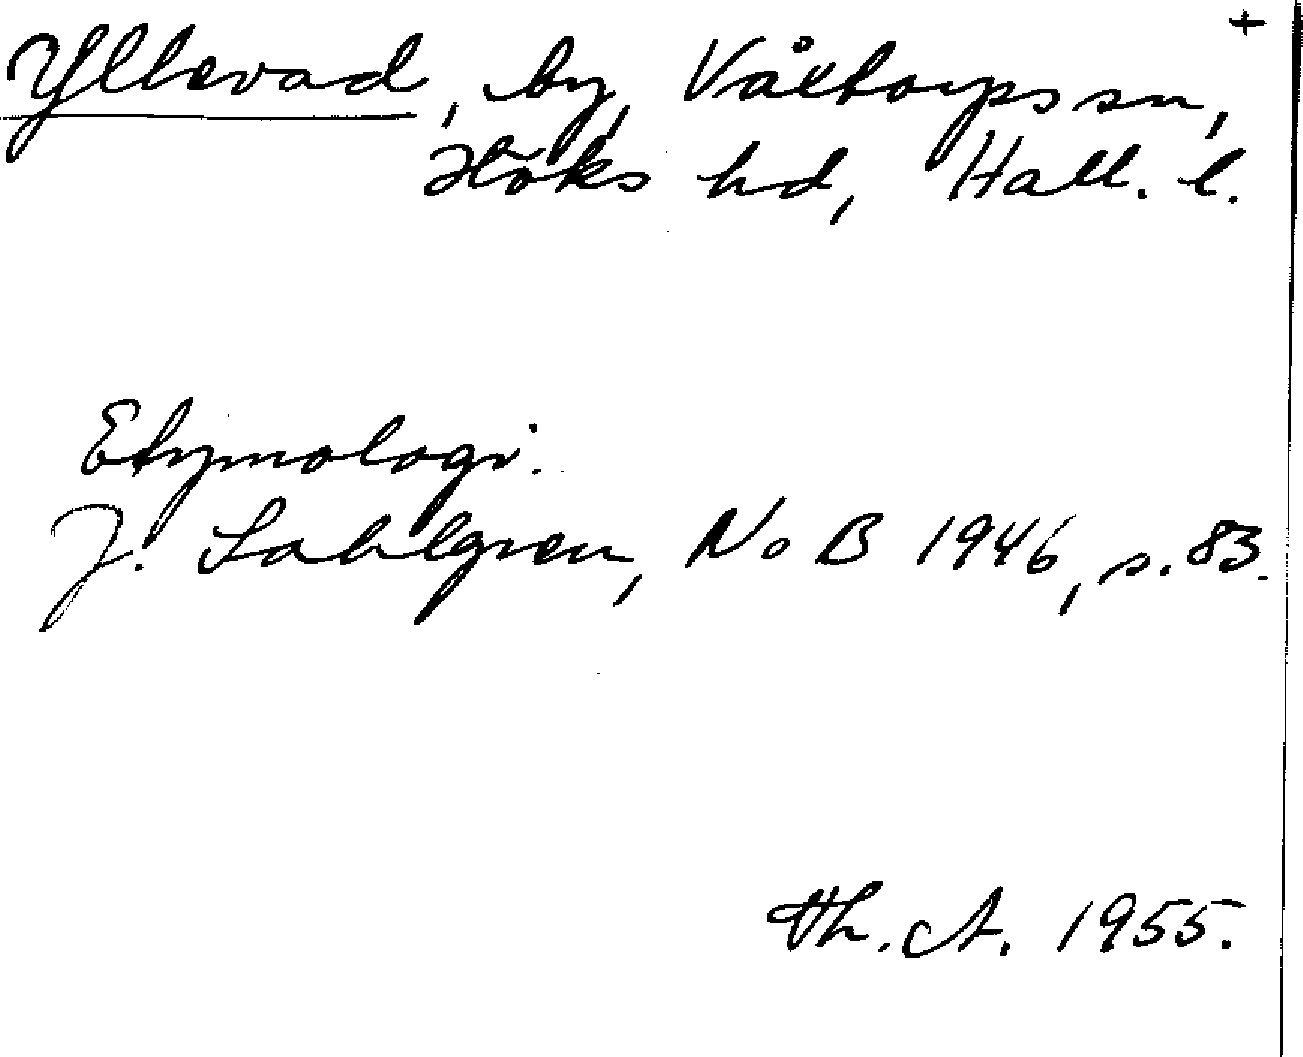 +
Yllevad, by, Våxtorps sn,
Höks hd, Hall. l.
Etymologi.
J. Sahlgren, NoB 1946, s. 83.
Th. A. 1955.